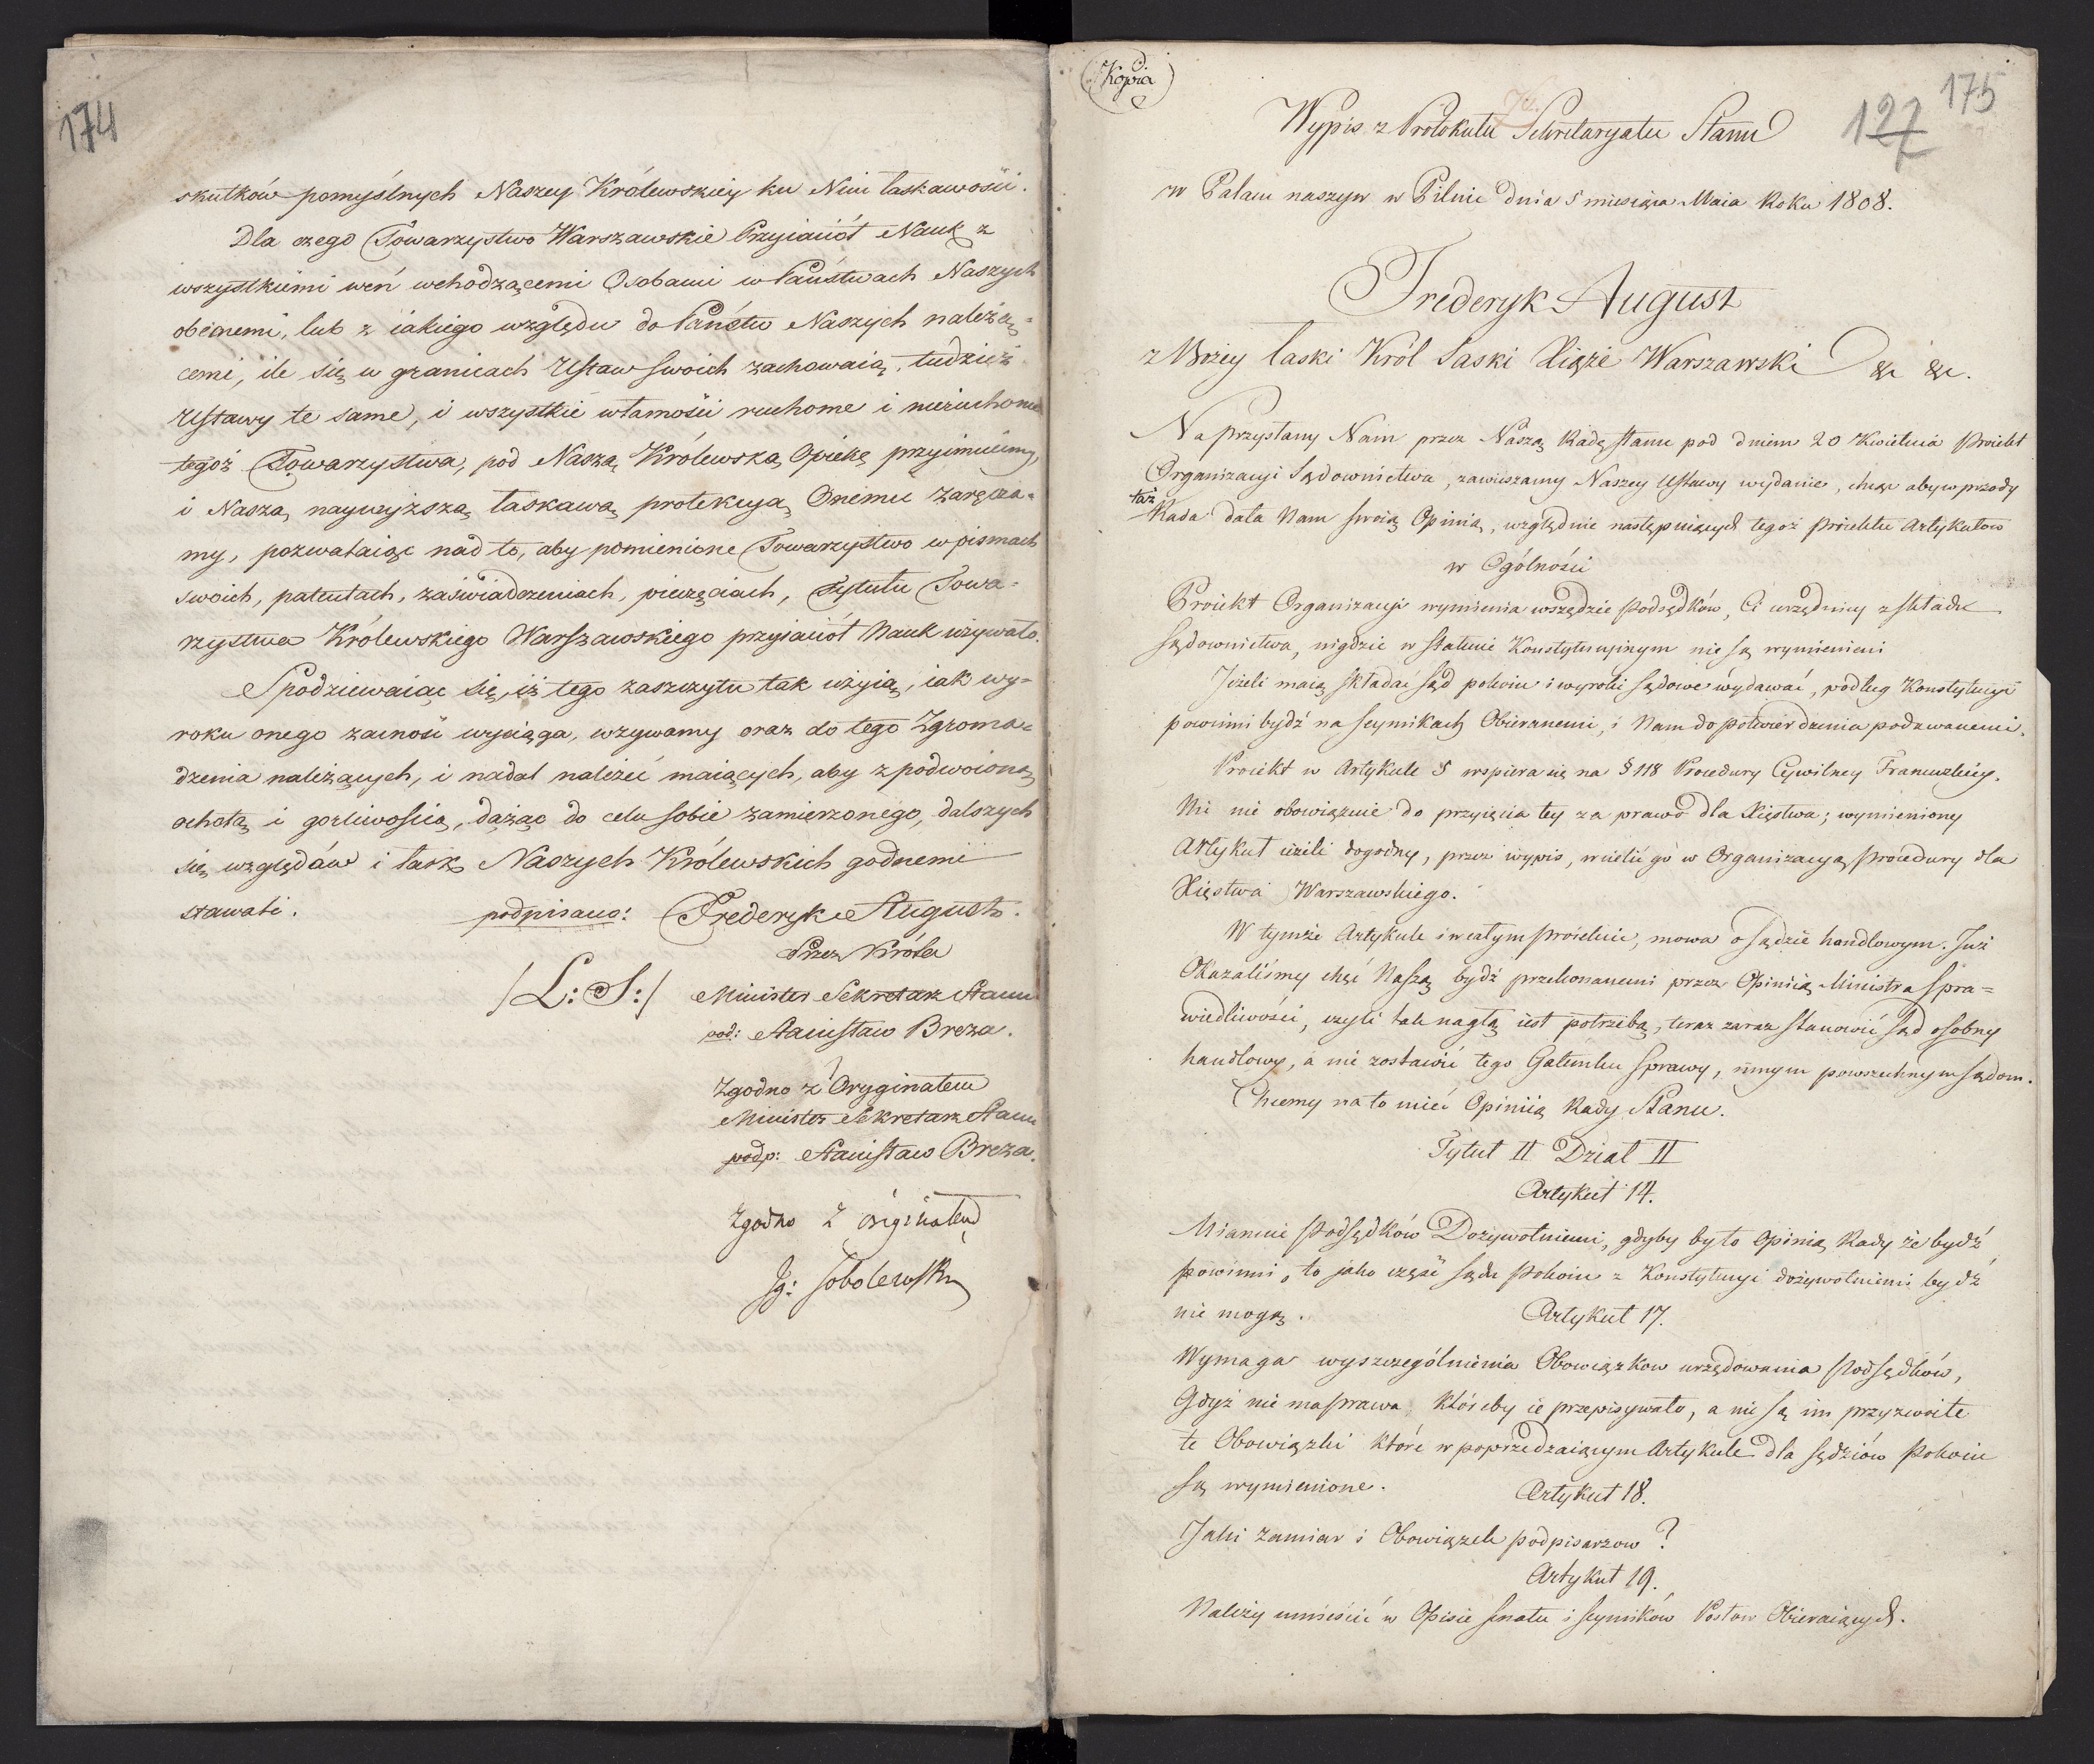 174
skutków pomyślnych Naszey Królewskiey ku Nim łaskawości.
Dla czego Towarzystwo Warszawskie Przyiaciół Nauk z
wszystkiemi weń wchodzącemi Osobami w Państwach Naszych
obecnemi, lub z iakiego względu do Państw Naszych należą=
cemi, ile się w granicach Ustaw swoich zachowaią, tudzież
Ustawy te same, i wszystkie własności ruchome i nieruchome
tegoż Towarzystwa, pod Naszą Królewską Opiekę przyimuiemy,
i Naszą naywyższą łaskawą protekcyą Onemu zaręcza=
my, pozwalaiąc nad to, aby pomienione Towarzystwo w pismach
swoich, patentach, zaświadczeniach, pieczęciach, Tytułu Towa=
rzystwa Królewskiego Warszawskiego przyiaciół Nauk używało.
Spodziewaiąc się, iż tego zaszczytu tak użyią, iak wy=
roku onego zacność wyciąga, wzywamy oraz do tego Zgroma=
dzenia należących, i nadal należeć maiących, aby z podwoioną
ochotą i gorliwością, dążąc do celu sobie zamierzonego, dalszych
się względów i łask Naszych Królewskich godnemi
stawali. podpisano: Frederyk August.
Przez Króla
/L: S:/ Minister Sekretarz Stanu
pod: Stanisław Breza.
Zgodno z Oryginałem
Minister Sekretarz Stanu
podp: Stanisław Breza.
Zgodno z originałem
Ig: Sobolewski
Kopia
127 175
Wypis z Protokułu Sekretaryatu Stanu
w Pałacu naszym w Pilnic dnia 5 miesiąca Maia Roku 1808.
Frederyk August
z Bożey łaski Król Saski Xiąże Warszawski &c &c.
Na przysłany Nam przez Naszą Radę stanu pod dniem 20 Kwietnia Proiekt
Organizacyi Sądownictwa, zawieszamy Naszey Ustawy wydanie, chcąc aby wprzódy
taż Rada dała Nam swoią Opinią, względnie następuiących tegoż Proiektu Artykułow
w Ogólności
Proiekt Organizacyi wymienia wszędzie Podsędków, Ci urzędnicy z składu
sądownictwa, nigdzie w statucie Konstytucyinym nie są wymienieni
Jeżeli maią składać sąd pokoiu i wyroki sądowe wydawać, podług Konstytucyi
powinni bydź na seymikach Obieranemi, i Nam do potwierdzenia podawanemi.
Proiekt w Artykule 5 wspiera się na § 118 Procedury Cywilney Francuzkiey.
Nic nie obowiązuie do przyięcia tey za prawo dla Xięstwa; wymieniony
Artykuł ieżeli dogodny, przez wypis, wcielić go w Organizacyą procedury dla
Xięstwa Warszawskiego.
W tymże Artykule i w całym proiekcie, mowa o sądzie handlowym. Już
Okazaliśmy chęć Naszą bydź przekonanemi przez Opinią Ministra spra=
wiedliwości, czyli tak nagłą iest potrzebą, teraz zaraz stanowić sąd osobny
handlowy, a nie zostawić tego Gatunku sprawy, innym powszechnym sądom.
Chcemy na to mieć Opinią Rady Stanu.
Tytuł II Dział II
Artykuł 14.
Mianuie Podsędków Dożywotniemi, gdyby było Opinią Rady że bydź
powinni, to jako część sądu Pokoiu z Konstytucyi dożywotniemi bydź
nie mogą.
Artykuł 17.
Wymaga wyszczególnienia Obowiązkow urzędowania Podsędków,
Gdyż nie ma prawa, któreby ie przepisywało, a nie są im przyzwoite
te Obowiązki które w poprzedzaiącym Artykule dla sędziów Pokoiu
są wymienione.
Artykuł 18.
Jaki zamiar i Obowiązek podpisarzow?
Artykuł 19.
Należy umieścić w Opisie senatu i seymików Posłow Obieraiących.